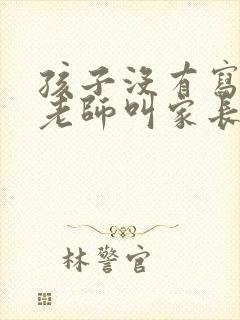 孩子沒有寫
老師叫家長
林警官